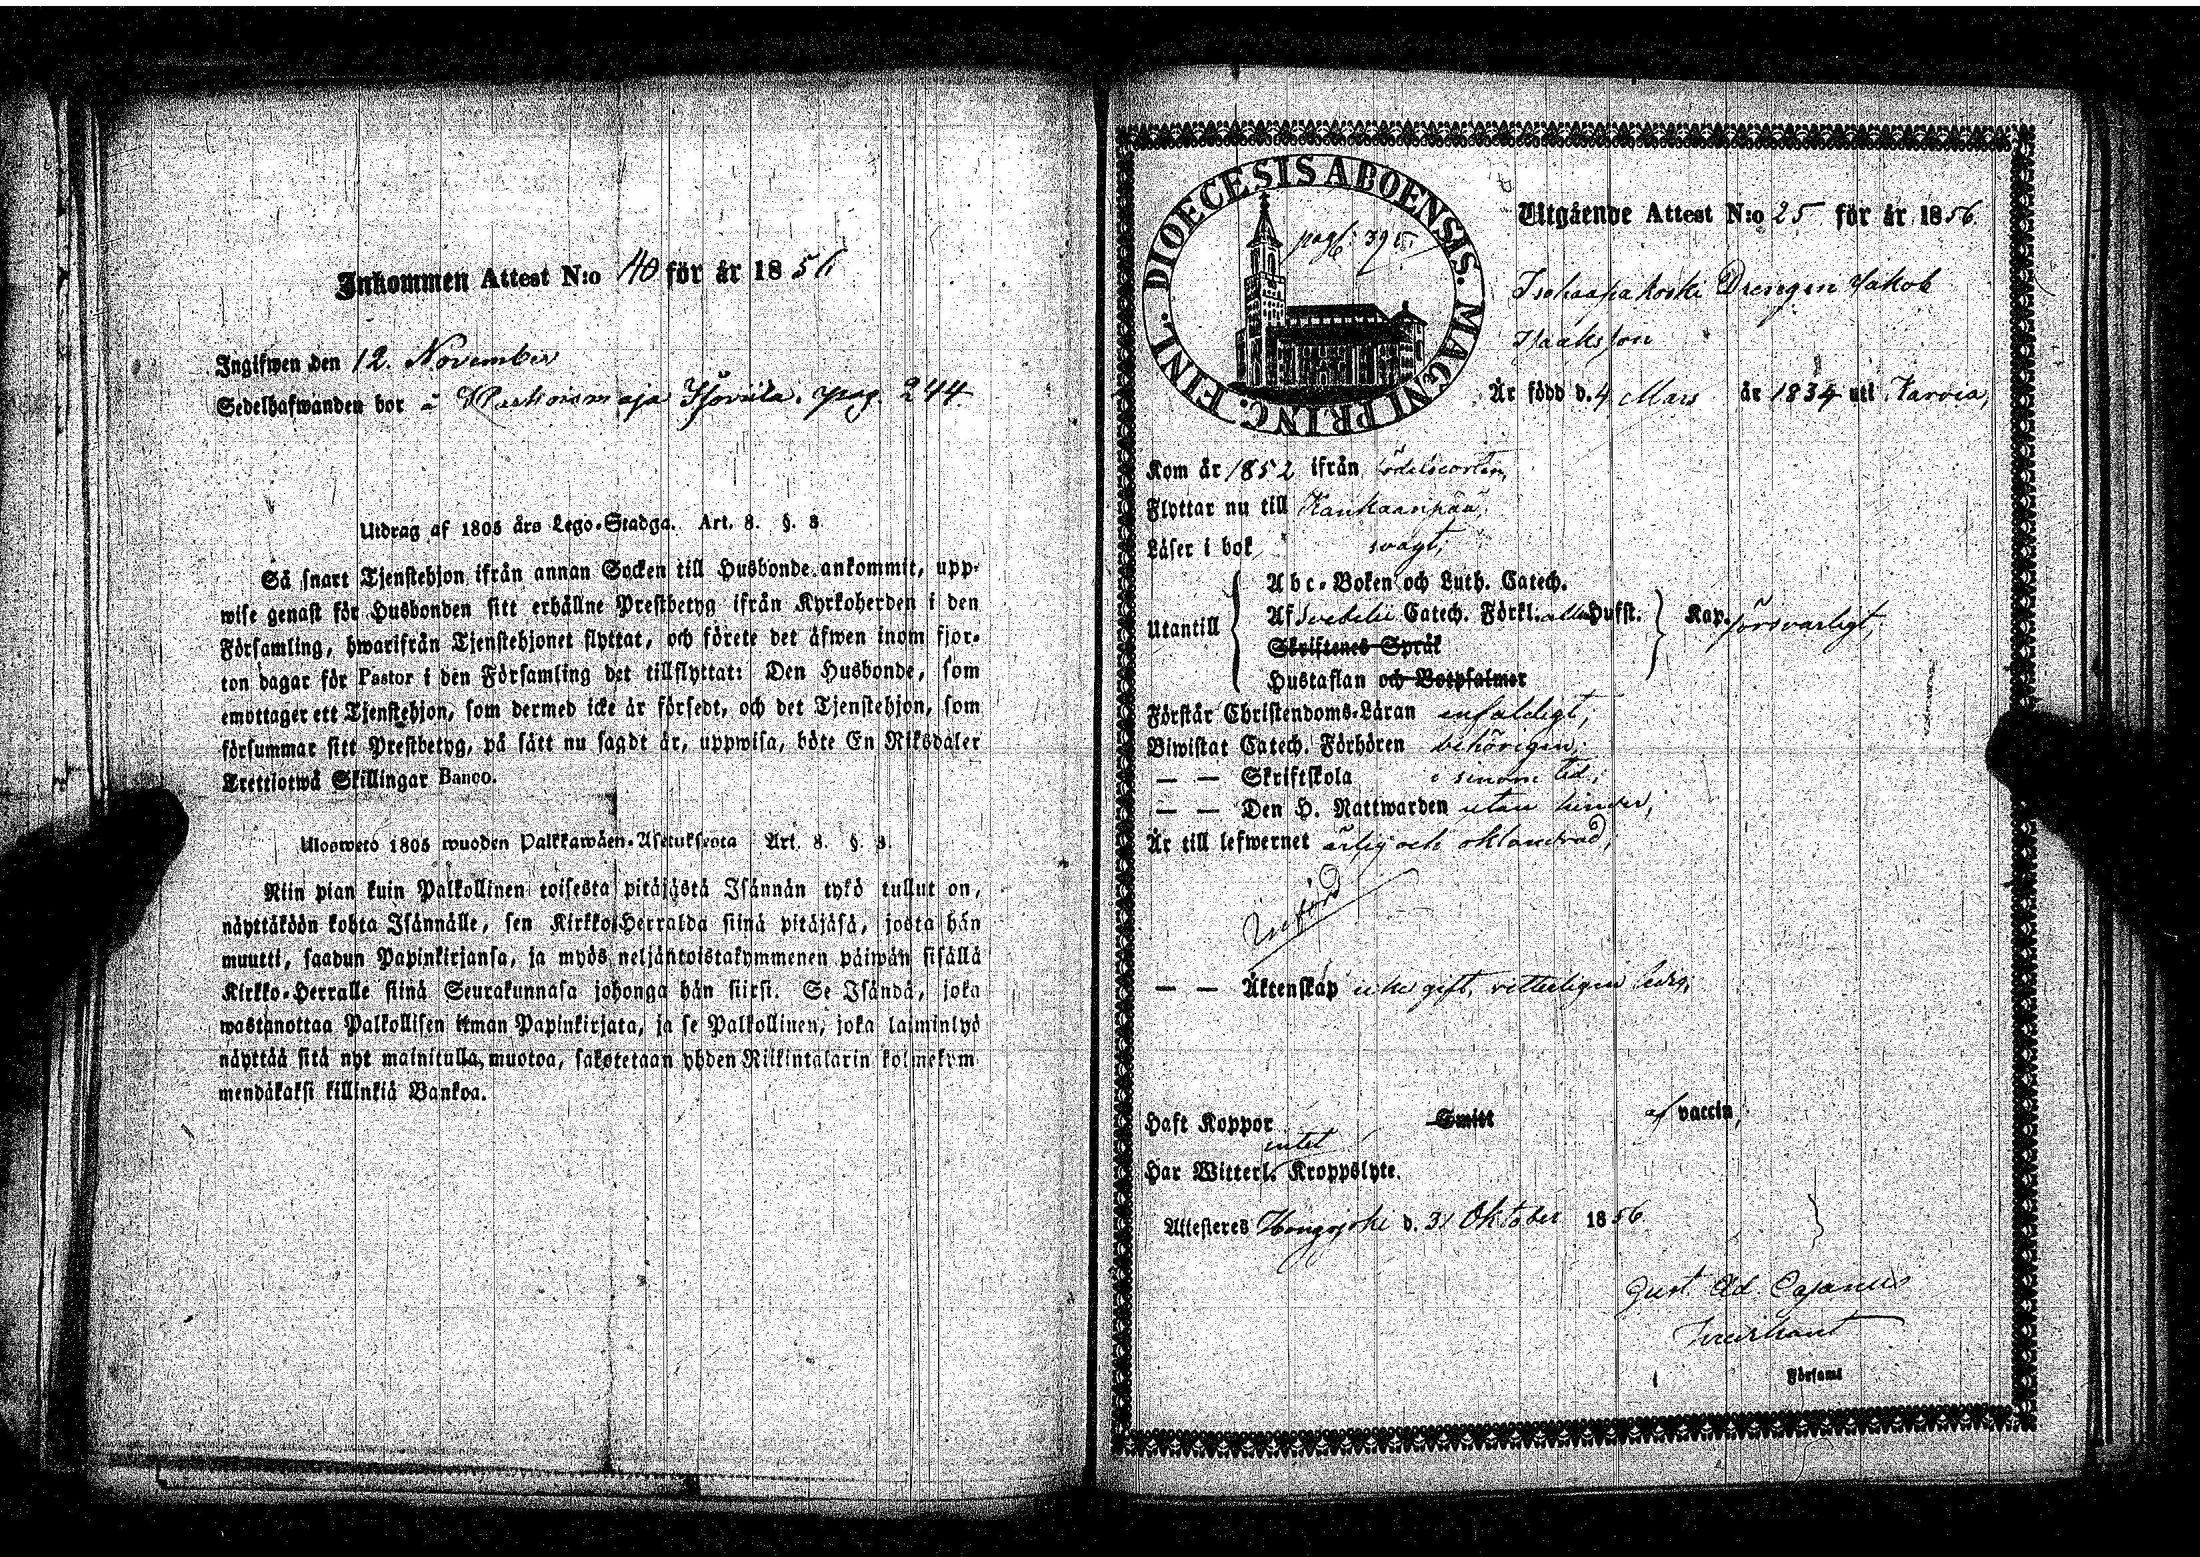 Inkommen Attest N:o 40 för år 1856
Ingifwen den 12. November
Sedelhafwanden bor å pag. 244.
Utdrag af 1805 års Lego-Stadga. Art. 8. §. 3
Så snart Tjenstehjon ifrån annan Socken till Husbonde ankommit, upp-
wise genast för Husbonden sitt erhållne Prestbetyg ifrån Kyrkoherden i den
Församling, hwarifrån Tjenstehjonet flyttat, och förete det äfwen inom fjor-
ton dagar för Pastor i den Församling det tillflyttat: Den Husbonde, som
emottager ett Tjenstehjon, som dermed icke är försedt, och det Tjenstehjon, som
försummar sitt Prestbetyg, på sätt nu sagdt är, uppwisa, böte En Riksdaler
Trettiotwå Skillingar Banco.
Uloswetö 1805 wuoden Palkkawäen-Asetuksesta Art. 8. §. 3.
Niin pian kuin Palkollinen toisesta pitäjästä Isännän tykö tullut on,
näyttäköön kohta Isännälle, sen Kirkko-Herralda siinä pitäjäsä, josta hän
muutti, saadun Papinkirjansa, ja myös neljäntoistakymmenen päiwän sisällä
Kirkko-Herralle siinä Seurakunnasa johonga hän siirsi. Se Isändä, joka
wastanottaa Palkollisen ilman Papinkirjata, ja se Palkollinen, joka laiminlyö
näyttää sitä nyt mainitulla muotoa, sakotetaan yhden Riikintalarin kolmekym-
mendäkaksi killinkiä Bankoa.
DIOECESIS ABOENSIS. MAGNI PRINC. FINL.
pag. 395
Utgående Attest N:o 25 för år 1856
Isohaapakoski Drengen Jakob
Isaaksson
Är född d. 4 Mars år 1834 uti Karvia,
Kom år 1852 ifrån födelseorten,
Flyttar nu till Kankaanpää,
Läser i bok svagt,
Utantill
Abc-Boken och Luth. Catech.
Af Svebelii Catech. Förkl. alla Hufst.
Skriftenes Språk
Hustaflan och Botpsalmer
Kap. försvarligt,
Förstår Christendoms-Läran enfaldigt,
Biwistat Catech. Förhören behörigen,
— — Skriftskola i sinom tid,
— — Den H. Nattwarden utan hinder,
Är till lefwernet ärlig och oklandrad,
Införd
— — Äktenskap icke gift, vetterligen ledig,
Haft Koppor Smitt af vaccin,
intet
Har Witterl. Kroppslyte.
Attesteres Hongojoki d. 31 Oktober 1856
Gust. Ad. Cajanus
Församl